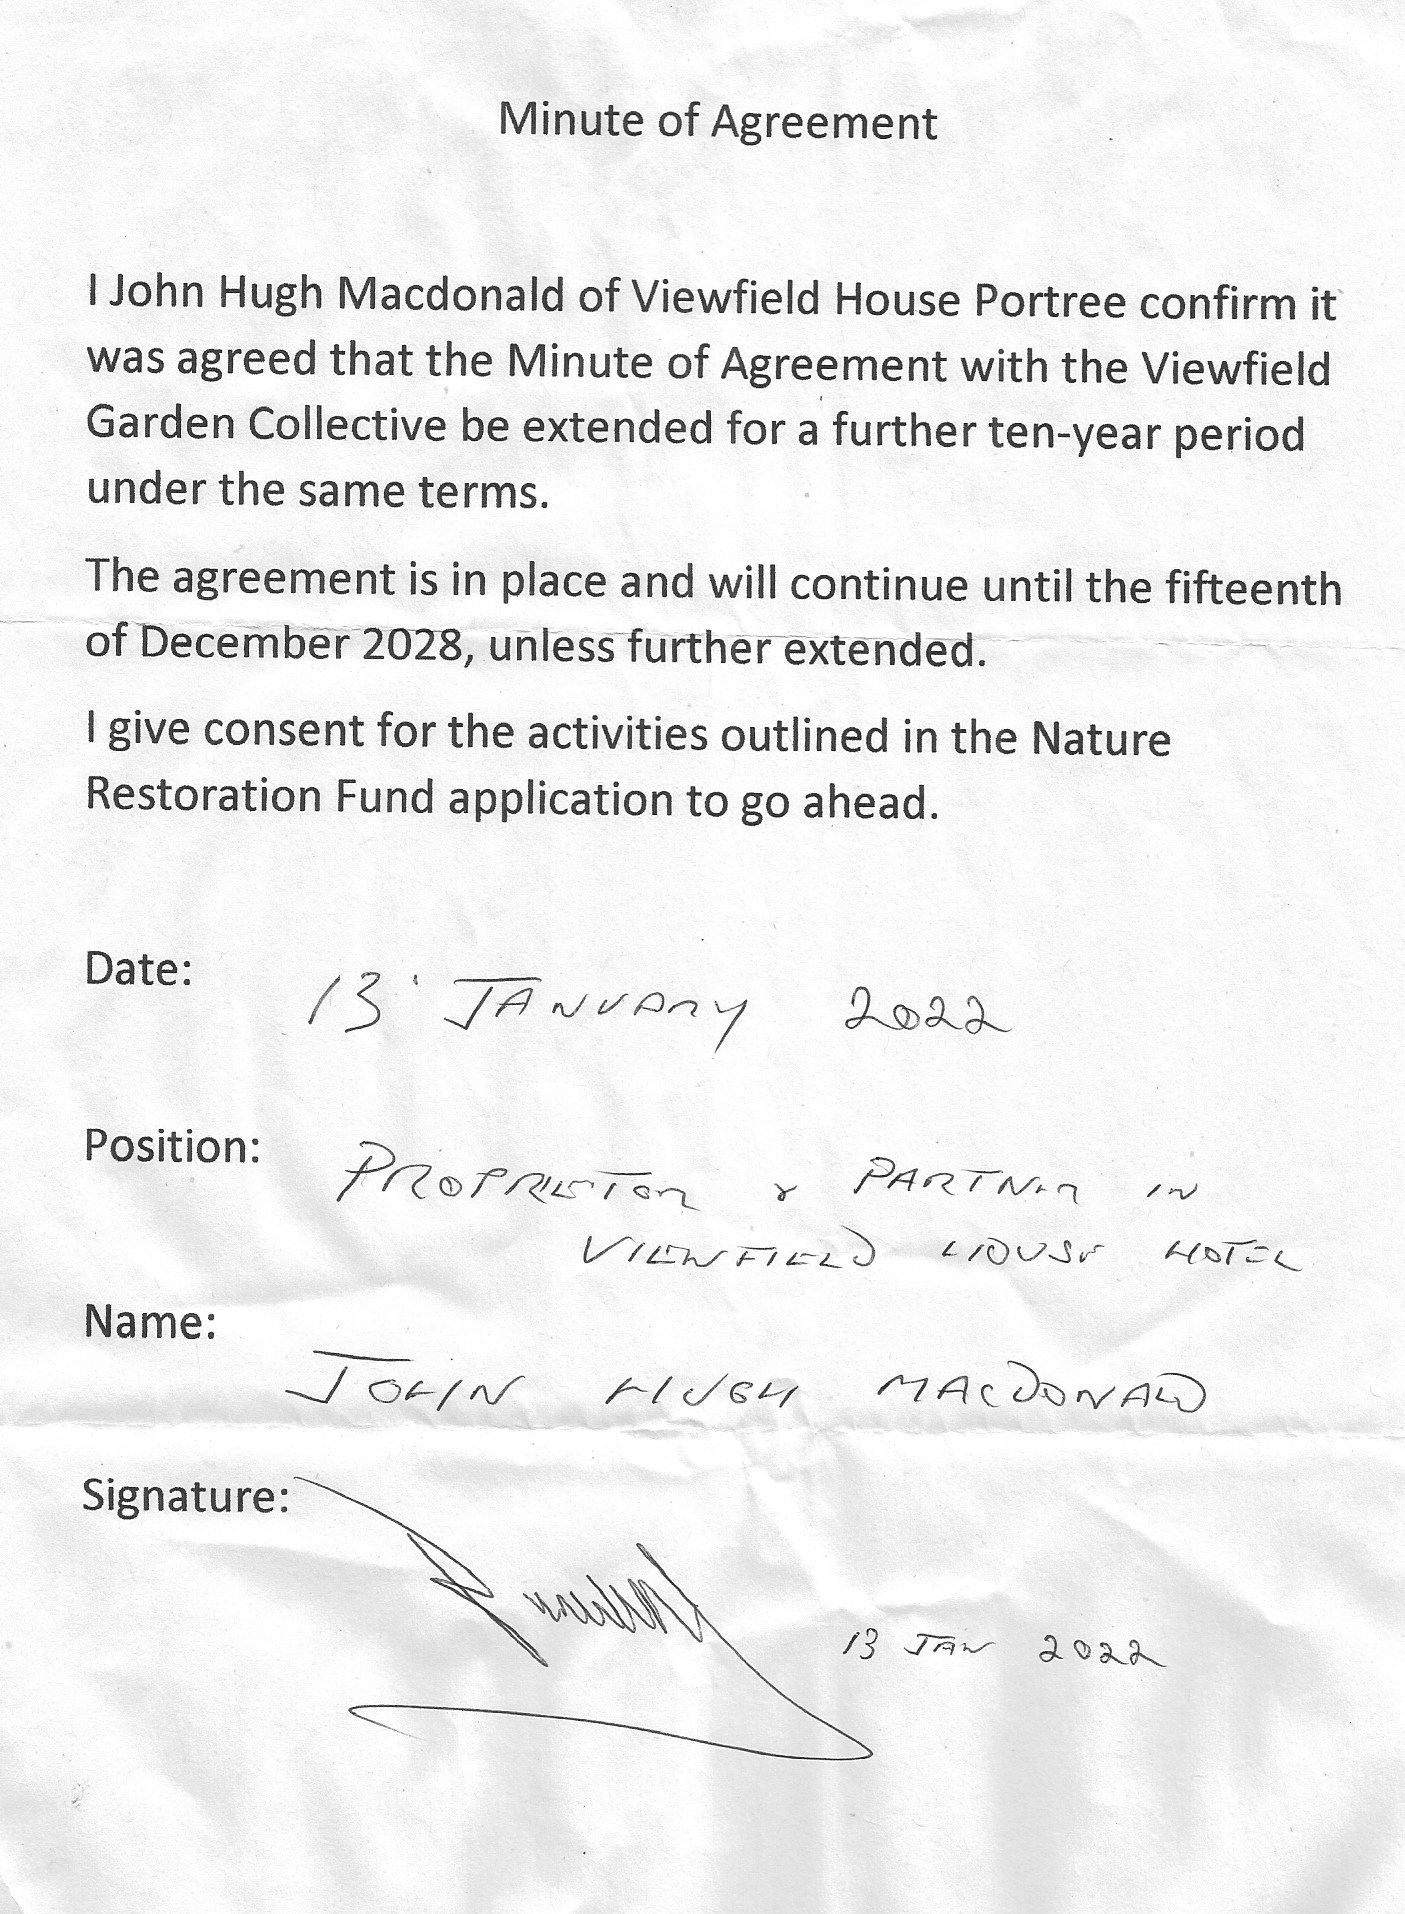 Minute of Agreement
I John Hugh Macdonald of Viewfield House Portree confirm it
was agreed that the Minute of Agreement with the Viewfield
Garden Collective be extended for a further ten-year period
under the same terms.
The agreement is in place and will continue until the fifteenth
of December 2028, unless further extended.
I give consent for the activities outlined in the Nature
Restoration Fund application to go ahead.
Date: 13 JANUARY 2022
Position: PROPRIETOR & PARTNER IN
VIEWFIELD HOUSE HOTEL
Name:
JOHN HUGH MACDONALD
Signature:
13 JAN 2022